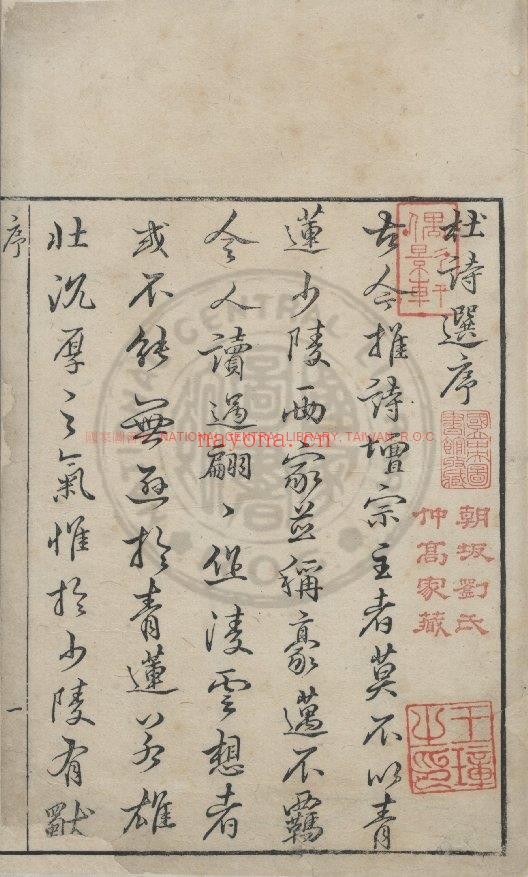 杜詩選序
古今推詩壇宗主者莫不以青
蓮少陵兩家並稱豪邁不羈
令人讀過翩翩、作凌雲想者
或不能無遜於青蓮若雄
壯沉厚之氣惟於少陵有獻
序
一
偶景軒
國立中央圖書館收藏
朝坂劉氏
仲高家藏
王璋之印
NATIONAL CENTRAL LIBRARY, TAIWAN, R.O.C.